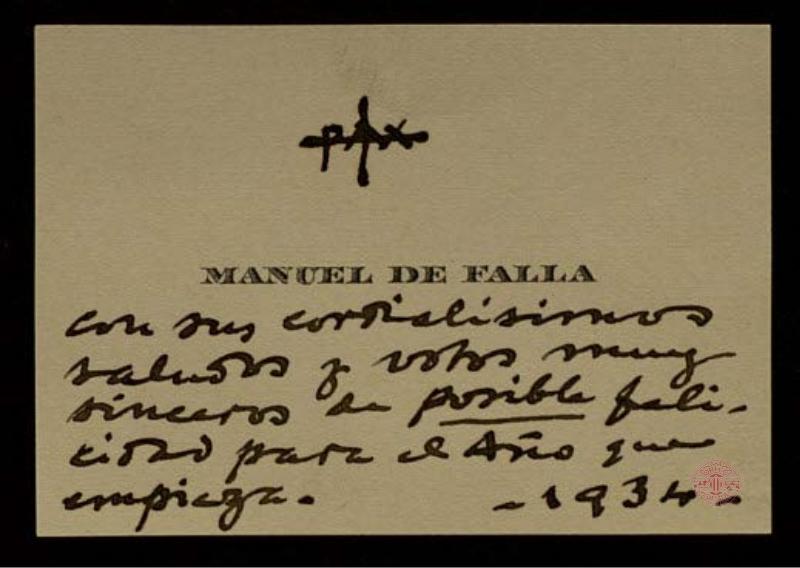 PAX
MANUEL DE FALLA
con sus cordialísimos
saludos y votos muy
sinceros de posible feli-
cidad para el Año que
empieza. - 1934 -